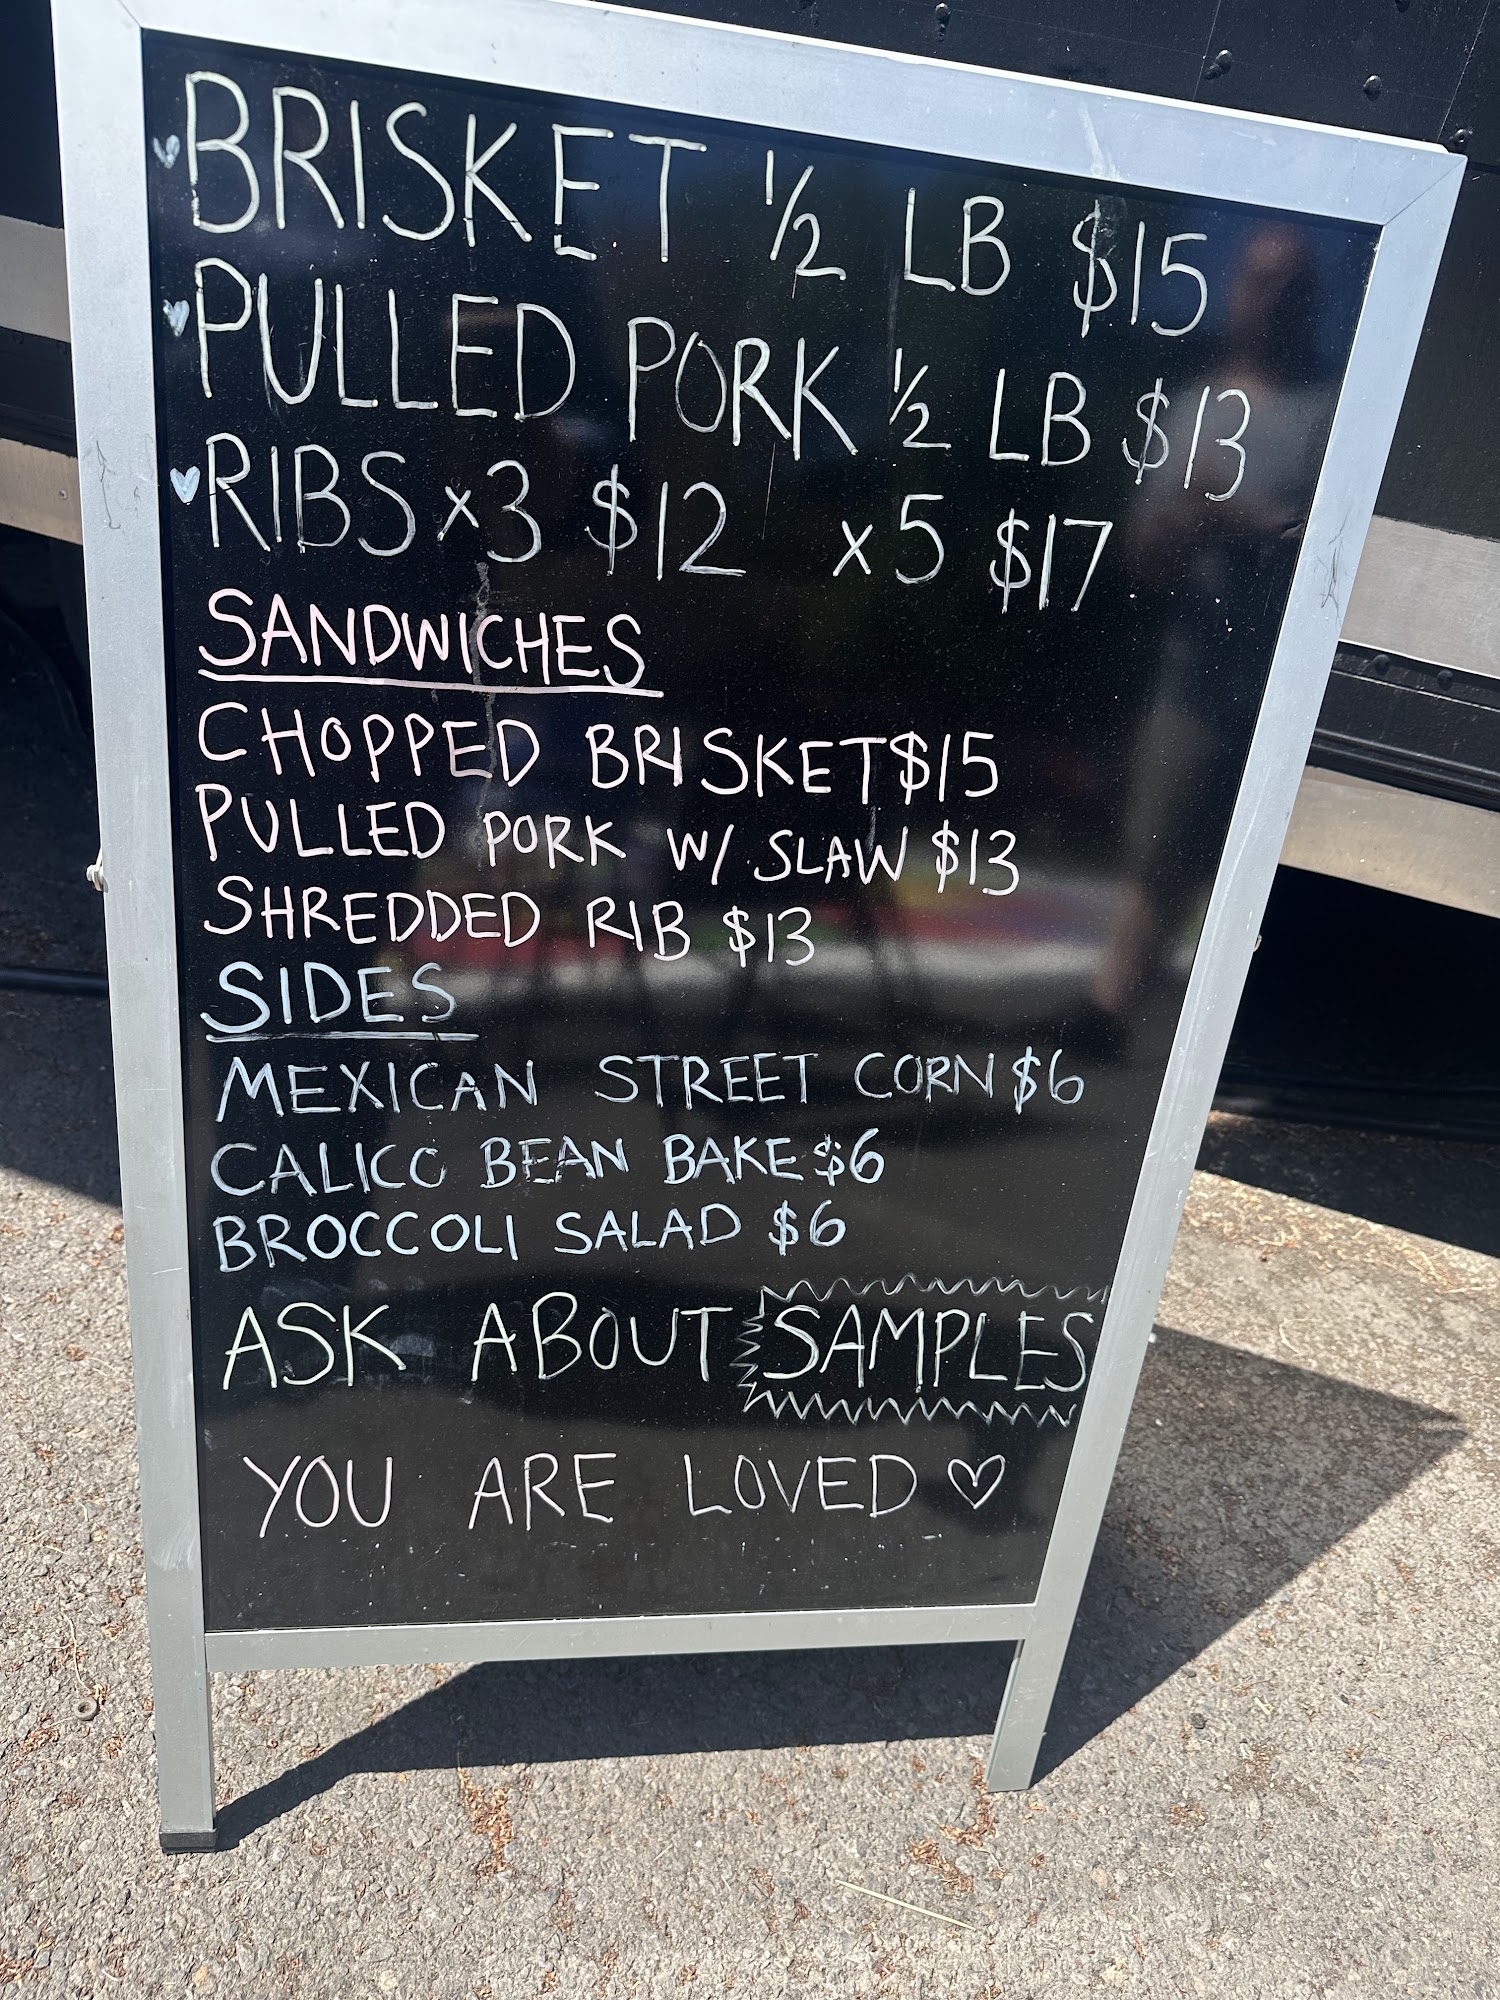 BRISKET 1/2 LB $15
PULLED PORK 1/2 LB $13
RIBS x3 $12 x5 $17
SANDWICHES
CHOPPED BRISKET $15
PULLED PORK W/ SLAW $13
SHREDDED RIB $13
SIDES
MEXICAN STREET CORN $6
CALICO BEAN BAKE $6
BROCCOLI SALAD $6
ASK ABOUT SAMPLES
YOU ARE LOVED ♡